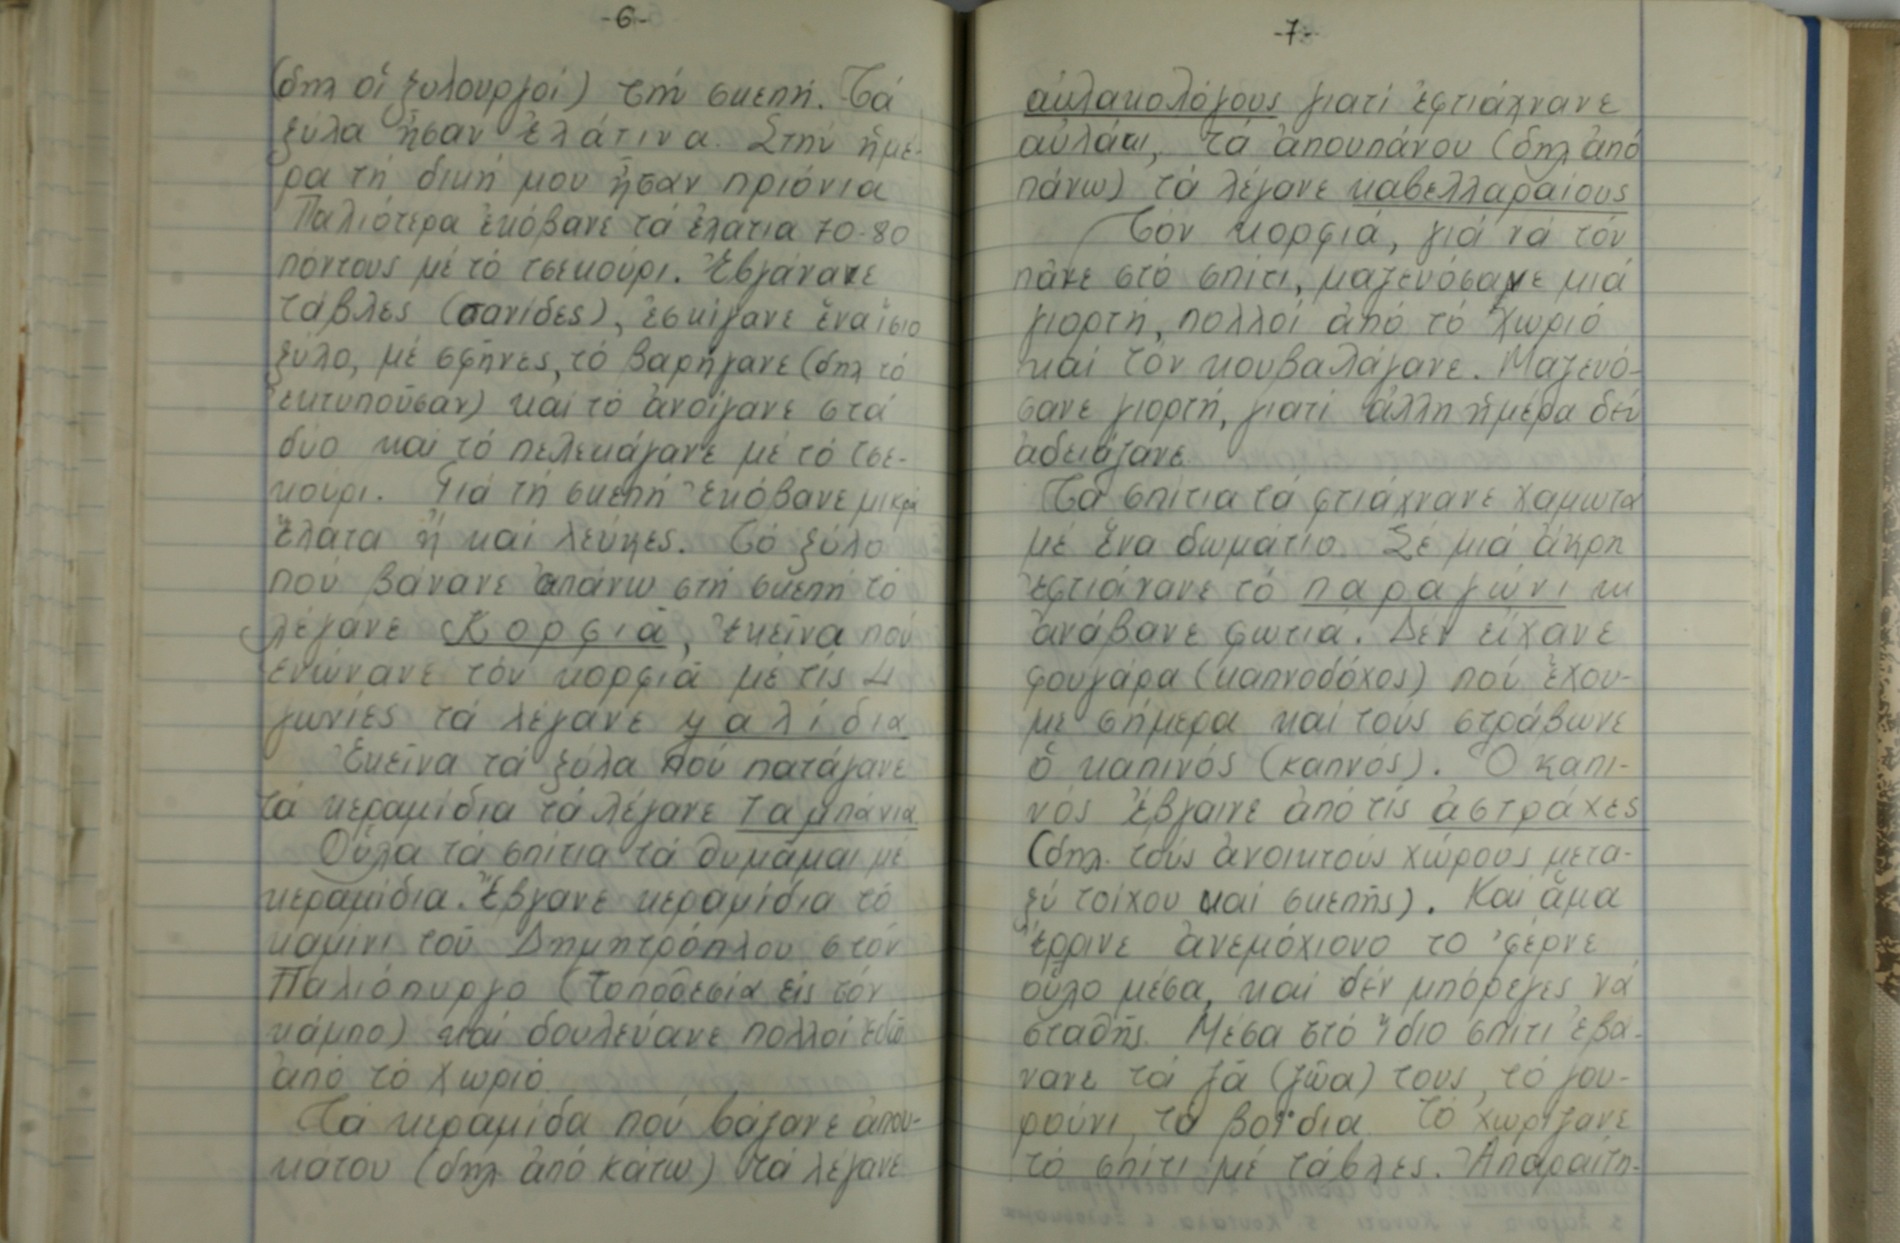 -6-
(δηλ οἱ ξυλουργοί) τήν σκεπή. Τά
ξύλα ἦσαν ἐλάτινα. Στήν ἡμέ-
ρα τή δική μου ἦσαν πριόνια
Παλιότερα ἐκόβανε τά ἐλάτια 70-80
πόντους μέ τό τσεκούρι. Ἐβγάνανε
τάβλες (σανίδες), ἐσκίγανε ἕνα ἴσιο
ξύλο, μέ σφῆνες, τό βαρήγανε (δηλ τό
ἐκτυποῦσαν) καί τό ἀνοίγανε στά
δύο καί τό πελεκάγανε μέ τό τσε-
κούρι. Γιά τή σκεπή ἐκόβανε μικρά
ἔλατα ἤ καί λεύκες. Τό ξύλο
πού βάνανε ἀπάνω στή σκεπή τό
λέγανε Κορφιᾶ, Ἐκεῖνα πού
ἐνώνανε τόν κορφιᾶ μέ τίς 4
γωνίες τά λέγανε ψαλίδια
Ἐκεῖνα τά ξύλα πού πατάγανε
τά κεραμίδια τά λέγανε Ταμπάνια
Οὗλα τά σπίτια τά θυμᾶμαι μέ
κεραμίδια. Ἔβγανε κεραμίδια τό
καμίνι τοῦ Δημητρόπλου στόν
Παλιόπυργο (τοποθεσία εἰς τόν
κάμπο) καί δουλεύανε πολλοί ἐδῶ
ἀπό τό χωριό.
Τά κεραμίδα πού βάζανε ἀπου-
κάτου (δηλ ἀπό κάτω) τά λέγανε
-7-
αὐλακολόγους γιατί ἐφτιάχνανε
αὐλάκι, τά ἀπουπάνου (δηλ ἀπό
πάνω) τά λέγανε καβελλαραίους
Τόν κορφιά, γιά νά τόν
πᾶνε στό σπίτι, μαζευόσανε μιά
γιορτή, πολλοί ἀπό τό χωριό
καί τόν κουβαλάγανε. Μαζευό-
σανε γιορτή, γιατί ἄλλη ἡμέρα δέν
ἀδειάζανε
Τά σπίτια τά φτιάχνανε χαμωτά
μέ ἕνα δωμάτιο. Σέ μιά ἄκρη
ἐφτιάνανε τό παραγώνι κι
ἀνάβανε φωτιά. Δέν εἴχανε
φουγάρα (καπνοδόχος) πού ἔχου-
με σήμερα καί τούς στράβωνε
ὁ καπινός (καπνός). Ὁ καπι-
νός ἔβγαινε ἀπό τίς ἀστράχες
(δηλ. τούς ἀνοικτούς χώρους μετα-
ξύ τοίχου καί σκεπῆς). Καί ἅμα
ἔρρινε ἀνεμόχιονο το 'φέρνε
οὗλο μέσα, καί δέν μπόρεγες νά
σταθῆς. Μέσα στό ἴδιο σπίτι ἐβά-
νανε τά ζᾶ (ζῶα) τους, τό γου-
ρούνι, τά βόϊδια. Τό χωρίζανε
τό σπίτι μέ τάβλες. Ἀπαραίτη-